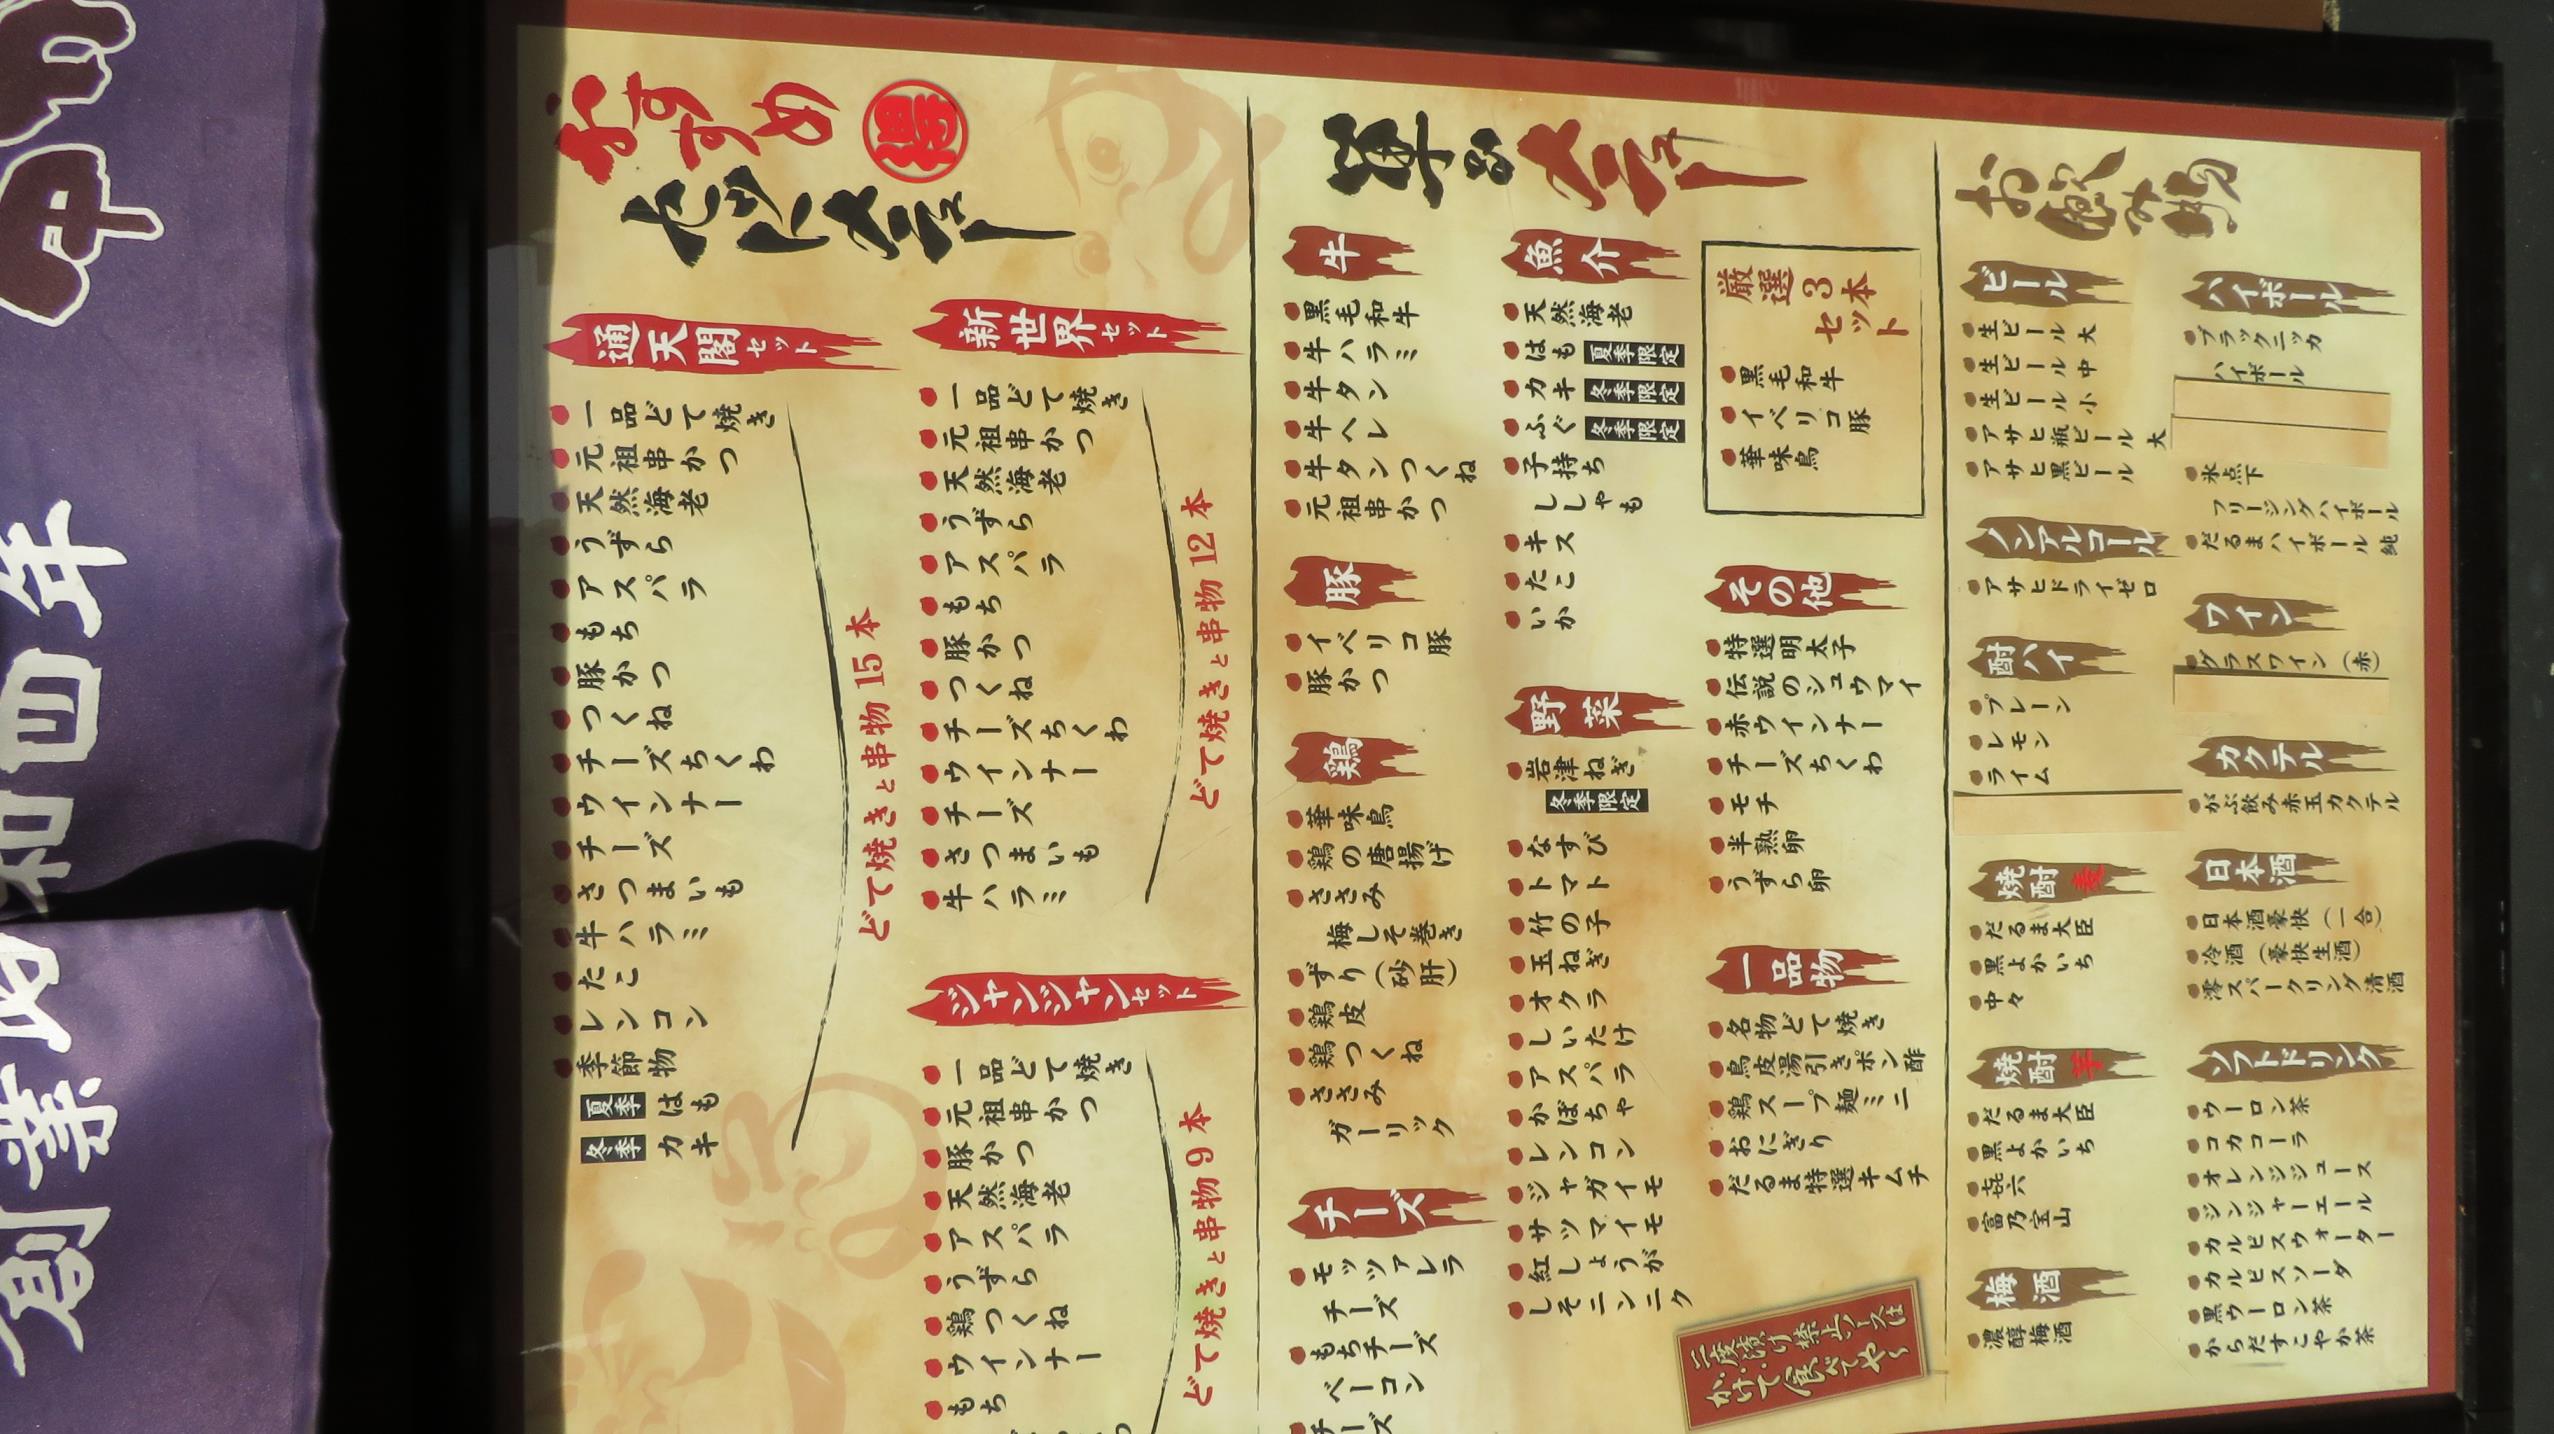 おすすめ
得
セットメニュー
通天閣セット
一品どて焼き
元祖串かつ
天然海老
うずら
アスパラ
もち
豚かつ
つくね
チーズちくわ
ウインナー
チーズ
さつまいも
牛ハラミ
たこ
レンコン
季節物
夏季 はも
冬季 カキ
どて焼きと串物15本
新世界セット
一品どて焼き
元祖串かつ
天然海老
うずら
アスパラ
もち
豚かつ
つくね
チーズちくわ
ウインナー
チーズ
さつまいも
牛ハラミ
どて焼きと串物12本
ジャンジャンセット
一品どて焼き
元祖串かつ
豚かつ
天然海老
アスパラ
うずら
鶏つくね
ウインナー
もち
どて焼きと串物9本
単品メニュー
牛
黒毛和牛
牛ハラミ
牛タン
牛ヘレ
牛タンつくね
元祖串かつ
豚
イベリコ豚
豚かつ
鶏
華味鳥
鶏の唐揚げ
ささみ
梅しそ巻き
ずり(砂肝)
鶏皮
鶏つくね
ささみ
ガーリック
チーズ
モッツァレラ
チーズ
もちチーズ
ベーコン
チーズ
魚介
天然海老
はも 夏季限定
カキ 冬季限定
ふぐ 冬季限定
子持ち
ししゃも
キス
たこ
いか
野菜
岩津ねぎ
冬季限定
なすび
トマト
竹の子
玉ねぎ
オクラ
しいたけ
アスパラ
かぼちゃ
レンコン
ジャガイモ
サツマイモ
紅しょうが
しそニンニク
厳選3本
セット
黒毛和牛
イベリコ豚
華味鳥
その他
特選明太子
伝説のシュウマイ
赤ウインナー
チーズちくわ
モチ
半熟卵
うずら卵
一品物
名物どて焼き
鳥皮湯引きポン酢
鶏スープ麺ミニ
おにぎり
だるま特選キムチ
二度漬け禁止ソースは
かけて食べてや〜
お飲み物
ビール
生ビール 大
生ビール 中
生ビール 小
アサヒ瓶ビール 大
アサヒ黒ビール
ノンアルコール
アサヒドライゼロ
酎ハイ
プレーン
レモン
ライム
焼酎 麦
だるま大臣
黒よかいち
中々
焼酎 芋
だるま大臣
黒よかいち
㐂六
富乃宝山
梅酒
濃醇梅酒
ハイボール
ブラックニッカ
ハイボール
氷点下
フリージングハイボール
だるまハイボール 純
ワイン
グラスワイン(赤)
カクテル
がぶ飲み赤玉カクテル
日本酒
日本酒豪快(一合)
冷酒(豪快生酒)
澪スパークリング清酒
ソフトドリンク
ウーロン茶
コカコーラ
オレンジジュース
ジンジャーエール
カルピスウォーター
カルピスソーダ
黒ウーロン茶
からだすこやか茶
創業昭和四年